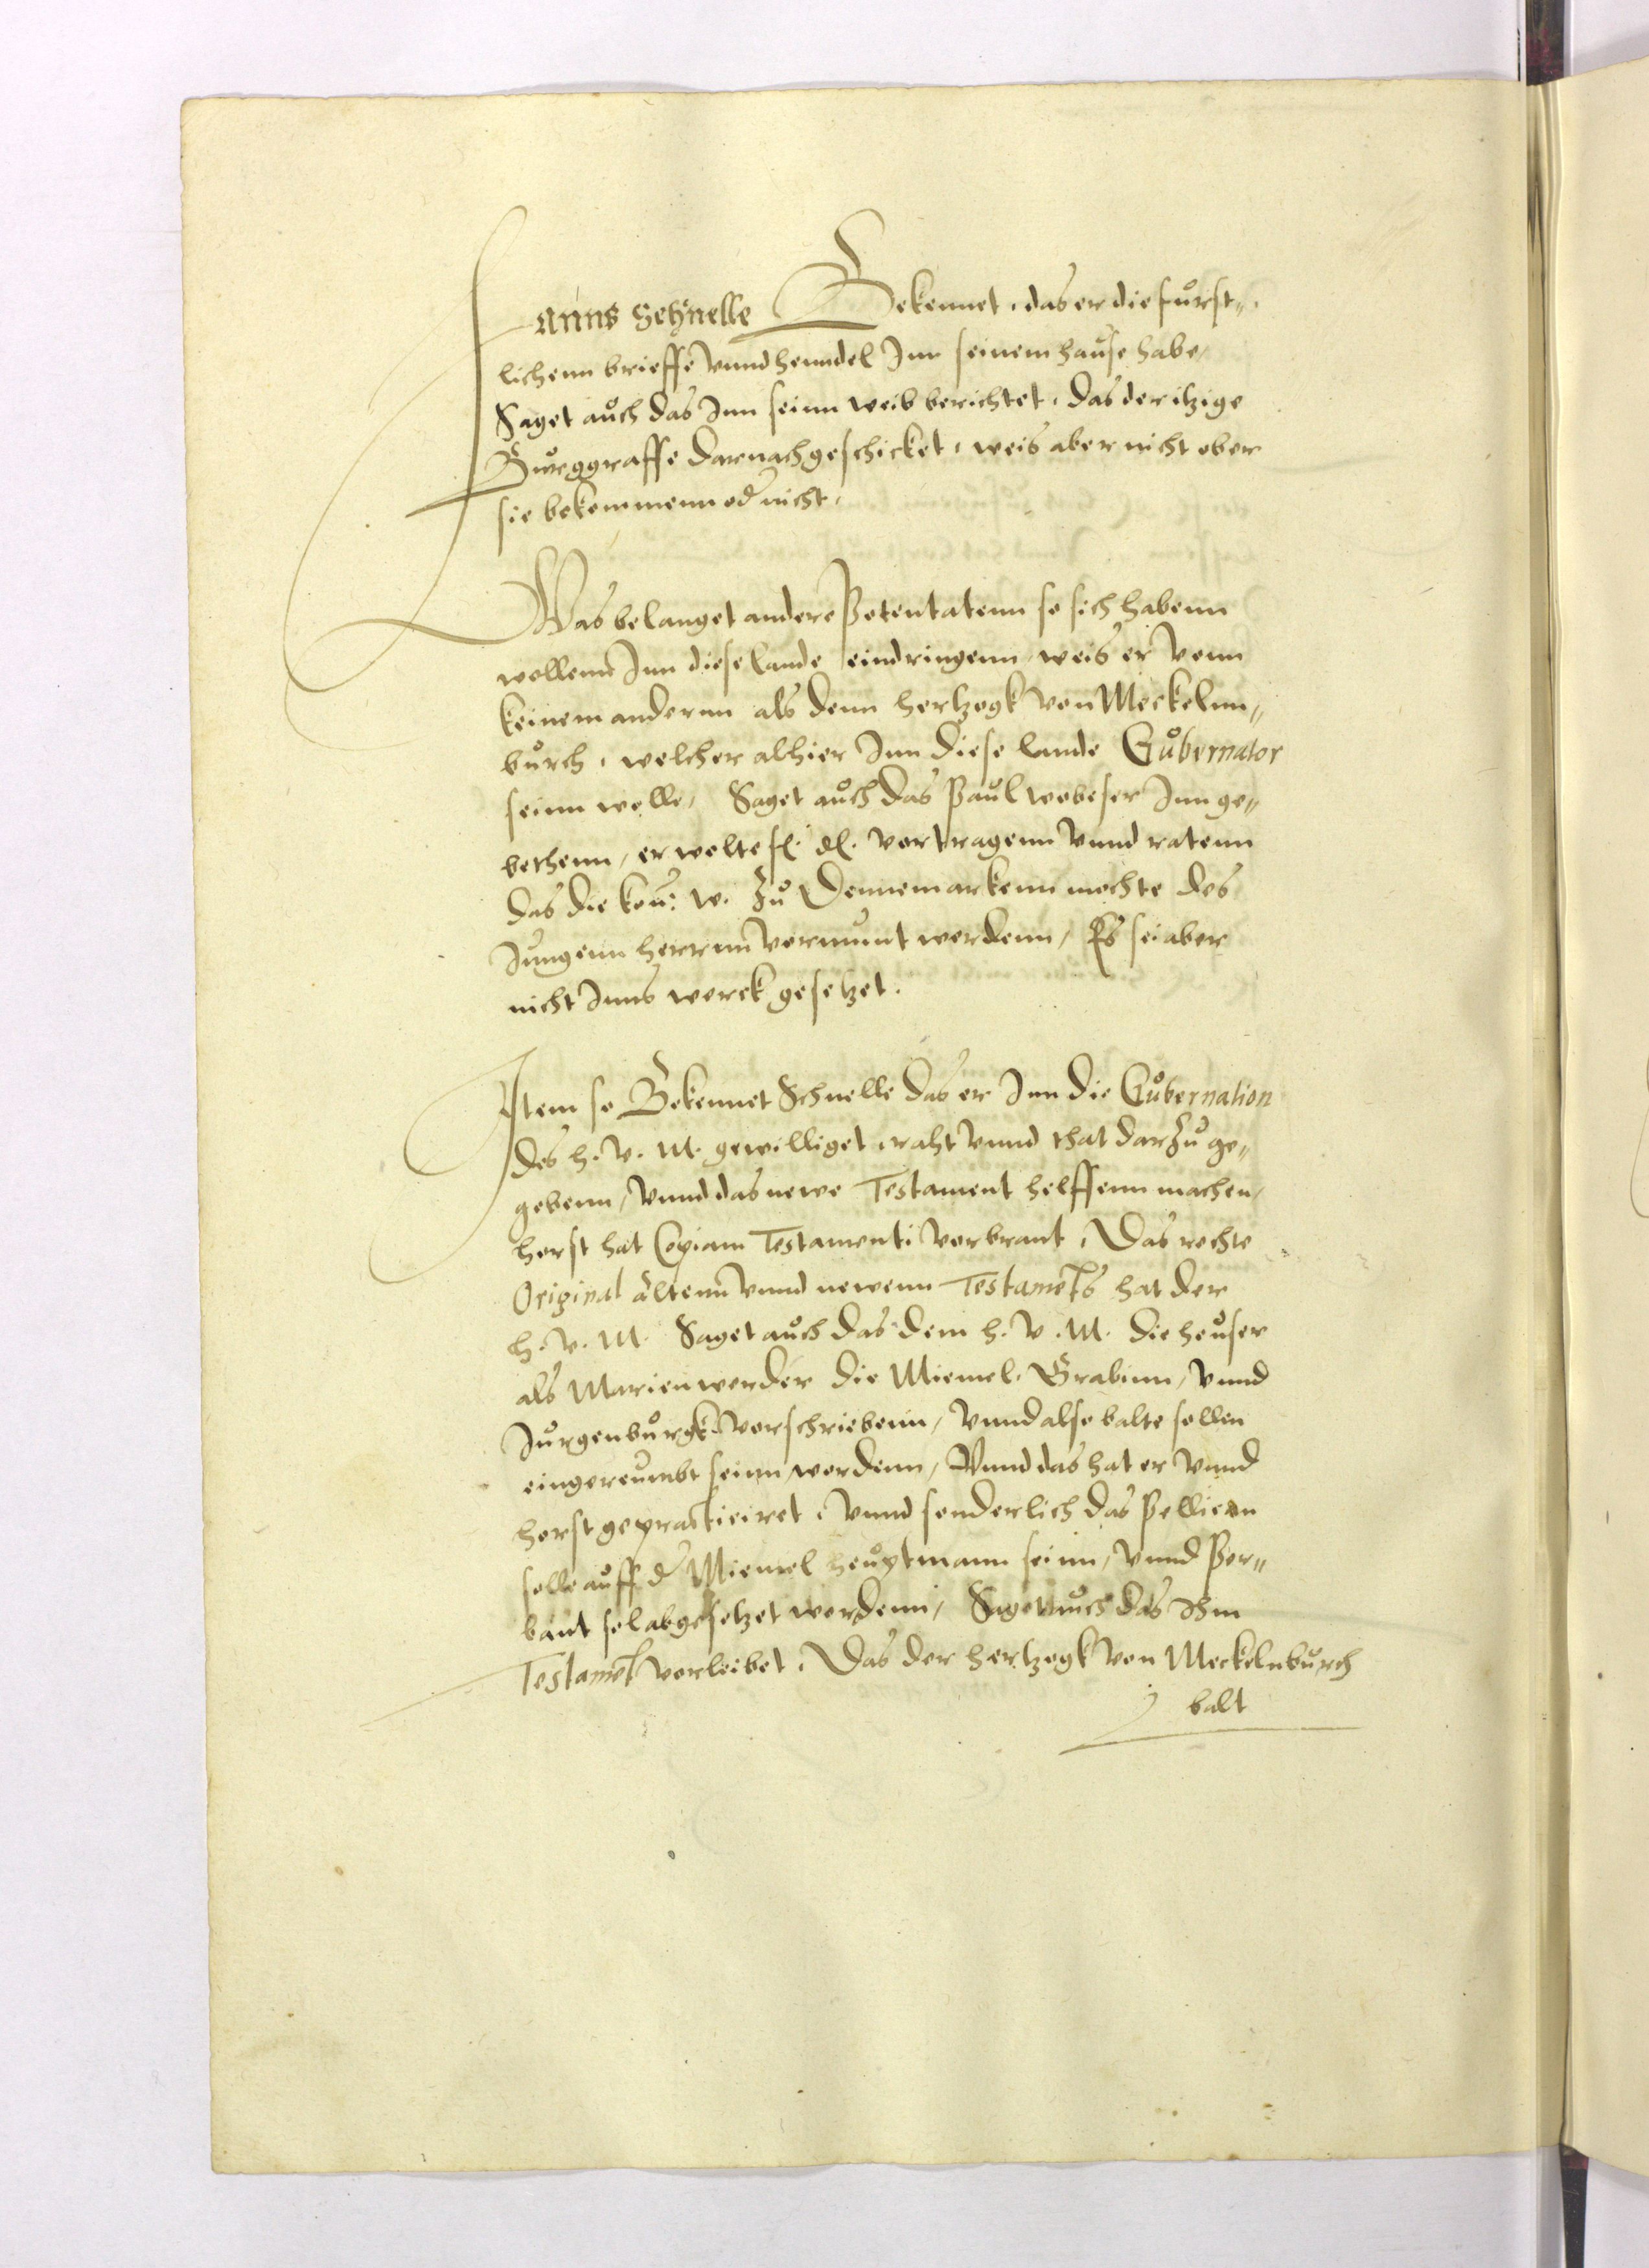 Hanns Schnelle Bekennet, das er die furst„
lichenn brieffe vnnd henndel Inn seinem hause habe,
Saget auch das Inn seinn weib berichtet, das der itzige
Burggraffe darnach geschicket, weis aber nicht ober
sie bekommenn oder nicht,
Was belanget andere Potentatenn so sich habenn
wollenn Inn diese lande eindringenn, weis er vonn
keinem andernn als denn hertzogk von Meckelnn„
burch, welcher alhier Inn diese lande Gubernator
seinn wolle, Saget auch das Paul wobeser Inn ge„
bethenn, er wolte fl. dl. vortragenn vnnd ratenn
das die kon: w. zu Dennemarkenn mochte des
Jungenn herrnn vormunt werdenn, Es sei aber
nicht Inns werck gesetzet.
Item so Bekennet Schnelle das er Inn die Gubernation
des h. v. M. gewilliget, raht vnnd that darzu ge„
gebenn, vnnd das newe Testament helffenn machen,
horst hat Copiam Testamenti vorbrant, Das rechte
Original altenn vnnd newenn Testaments hat der
h. v. M. Saget auch das dem h. v. M. die heuser
als Marienwerder die Miemel, Grabinn, vnnd
Jurgenburgk vorschriebenn, vnnd also balte sollen
eingereumbt seinn wordenn, Vnnd das hat er vnnd
horst gepracticiret, vnnd sonderlich das Pellican
solle auff der Miemel heuptmann seinn, vnnd Per„
bant sol abgesetzet werdenn, Saget auch das Ihm
Testament vorleibet, Das der hertzogk von Meckelnburch
balt